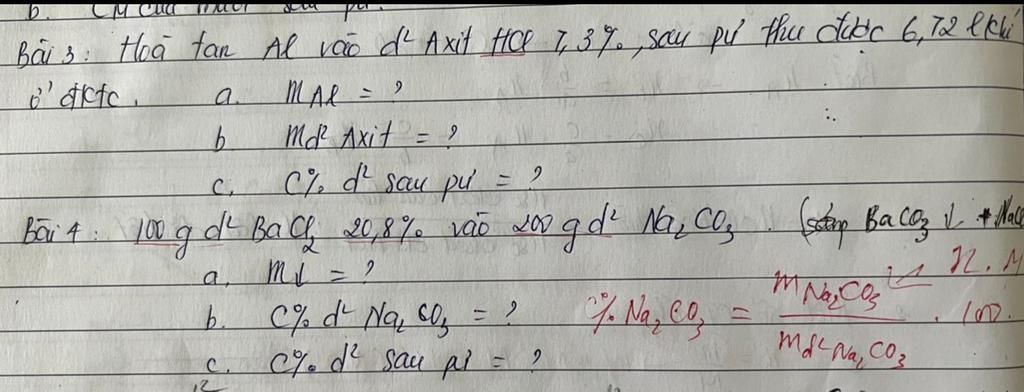 b. CM của muối sau pư.
Bài 3: Hoà tan Al vào d² Axit HCl 7,3%, sau pư thu được 6,72 l khí
ở đktc. a. mAl = ?
b md² Axit = ?
c. C% d² sau pư = ?
Bài 4: 100 g d² BaCl₂ 20,8% vào 200 g d² Na₂CO₃. (sp BaCO₃ ↓ + NaCl
a. m↓ = ?
b. C% d² Na₂CO₃ = ? C% Na₂CO₃ = mNa₂CO₃ / md² Na₂CO₃ . 100 ← n.M
c. C% d² sau pư = ?